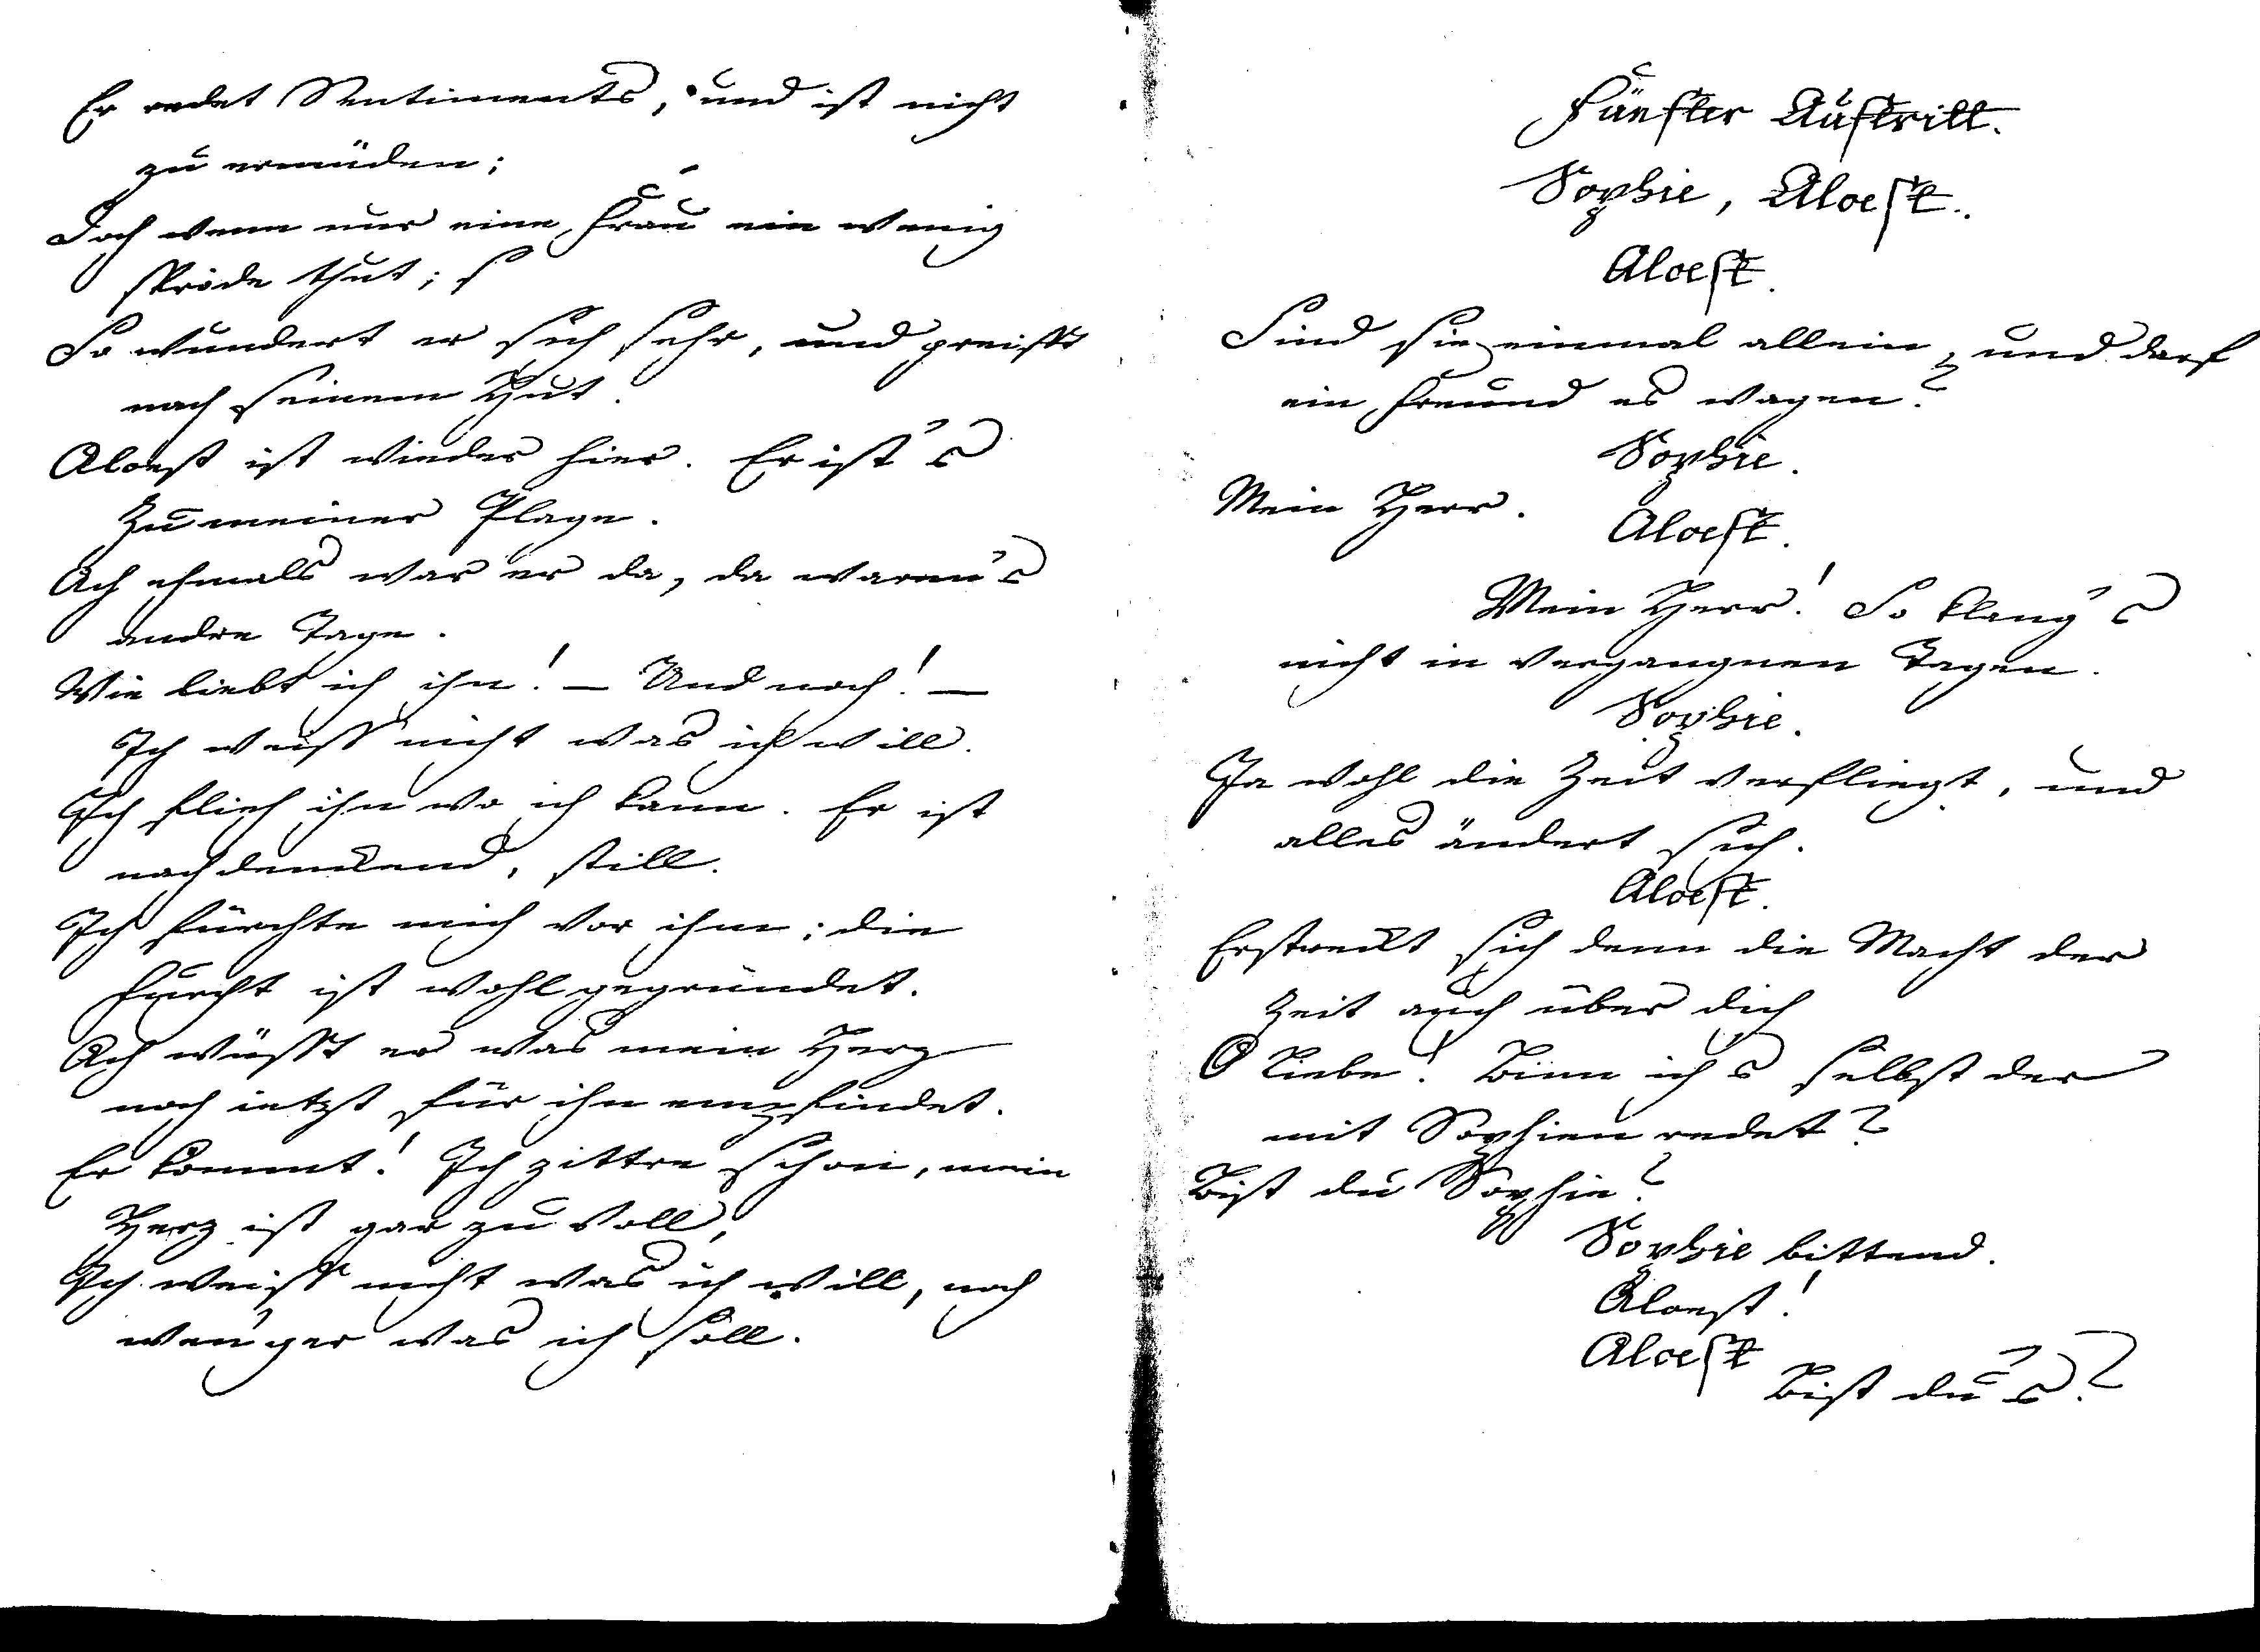 Er redet Sentiments, und ist nicht
zu ermüden;
Doch wenn nur eine Frau ein wenig
spröde thut; s
So wundert er sich sehr, und greifft
nach seinem Hut.
Alcest ist wieder hier. Er ist's
zu meiner Plage.
Ach ehmals war er da, da waren's
andre Tage.
Wie liebt ich ihn! — Und noch! —
Ich weiss nicht was ich will.
Ich flieh ihn wo ich kann. Er ist
nachdenckend, still.
Ich fürchte mich vor ihm; die
Furcht ist wohl gegründet.
Ach wüsst er was mein Herz
noch ietzt für ihn empfindet.
Er kommt! Ich zittre schon, mein
Herz ist gar zu voll,
Ich weiss nicht was ich will, noch
wen'ger was ich soll.
Fünfter Auftritt.
Sophie, Alcest.
Alcest.
Sind sie einmal allein, und darf
ein Freund es wagen?
Sophie.
Mein Herr.
Alcest.
Mein Herr! So klang's
nicht in vergangnen Tagen.
Sophie.
Ja wohl die Zeit verfliegt, und
alles ändert sich.
Alcest.
Erstreckt sich denn die Macht der
Zeit auch über dich
O Liebe! Binn ich s selbst der
mit Sophien redet?
Bist du Sophie?
Sophie bittend.
Alcest!
Alcest
Bist du's?